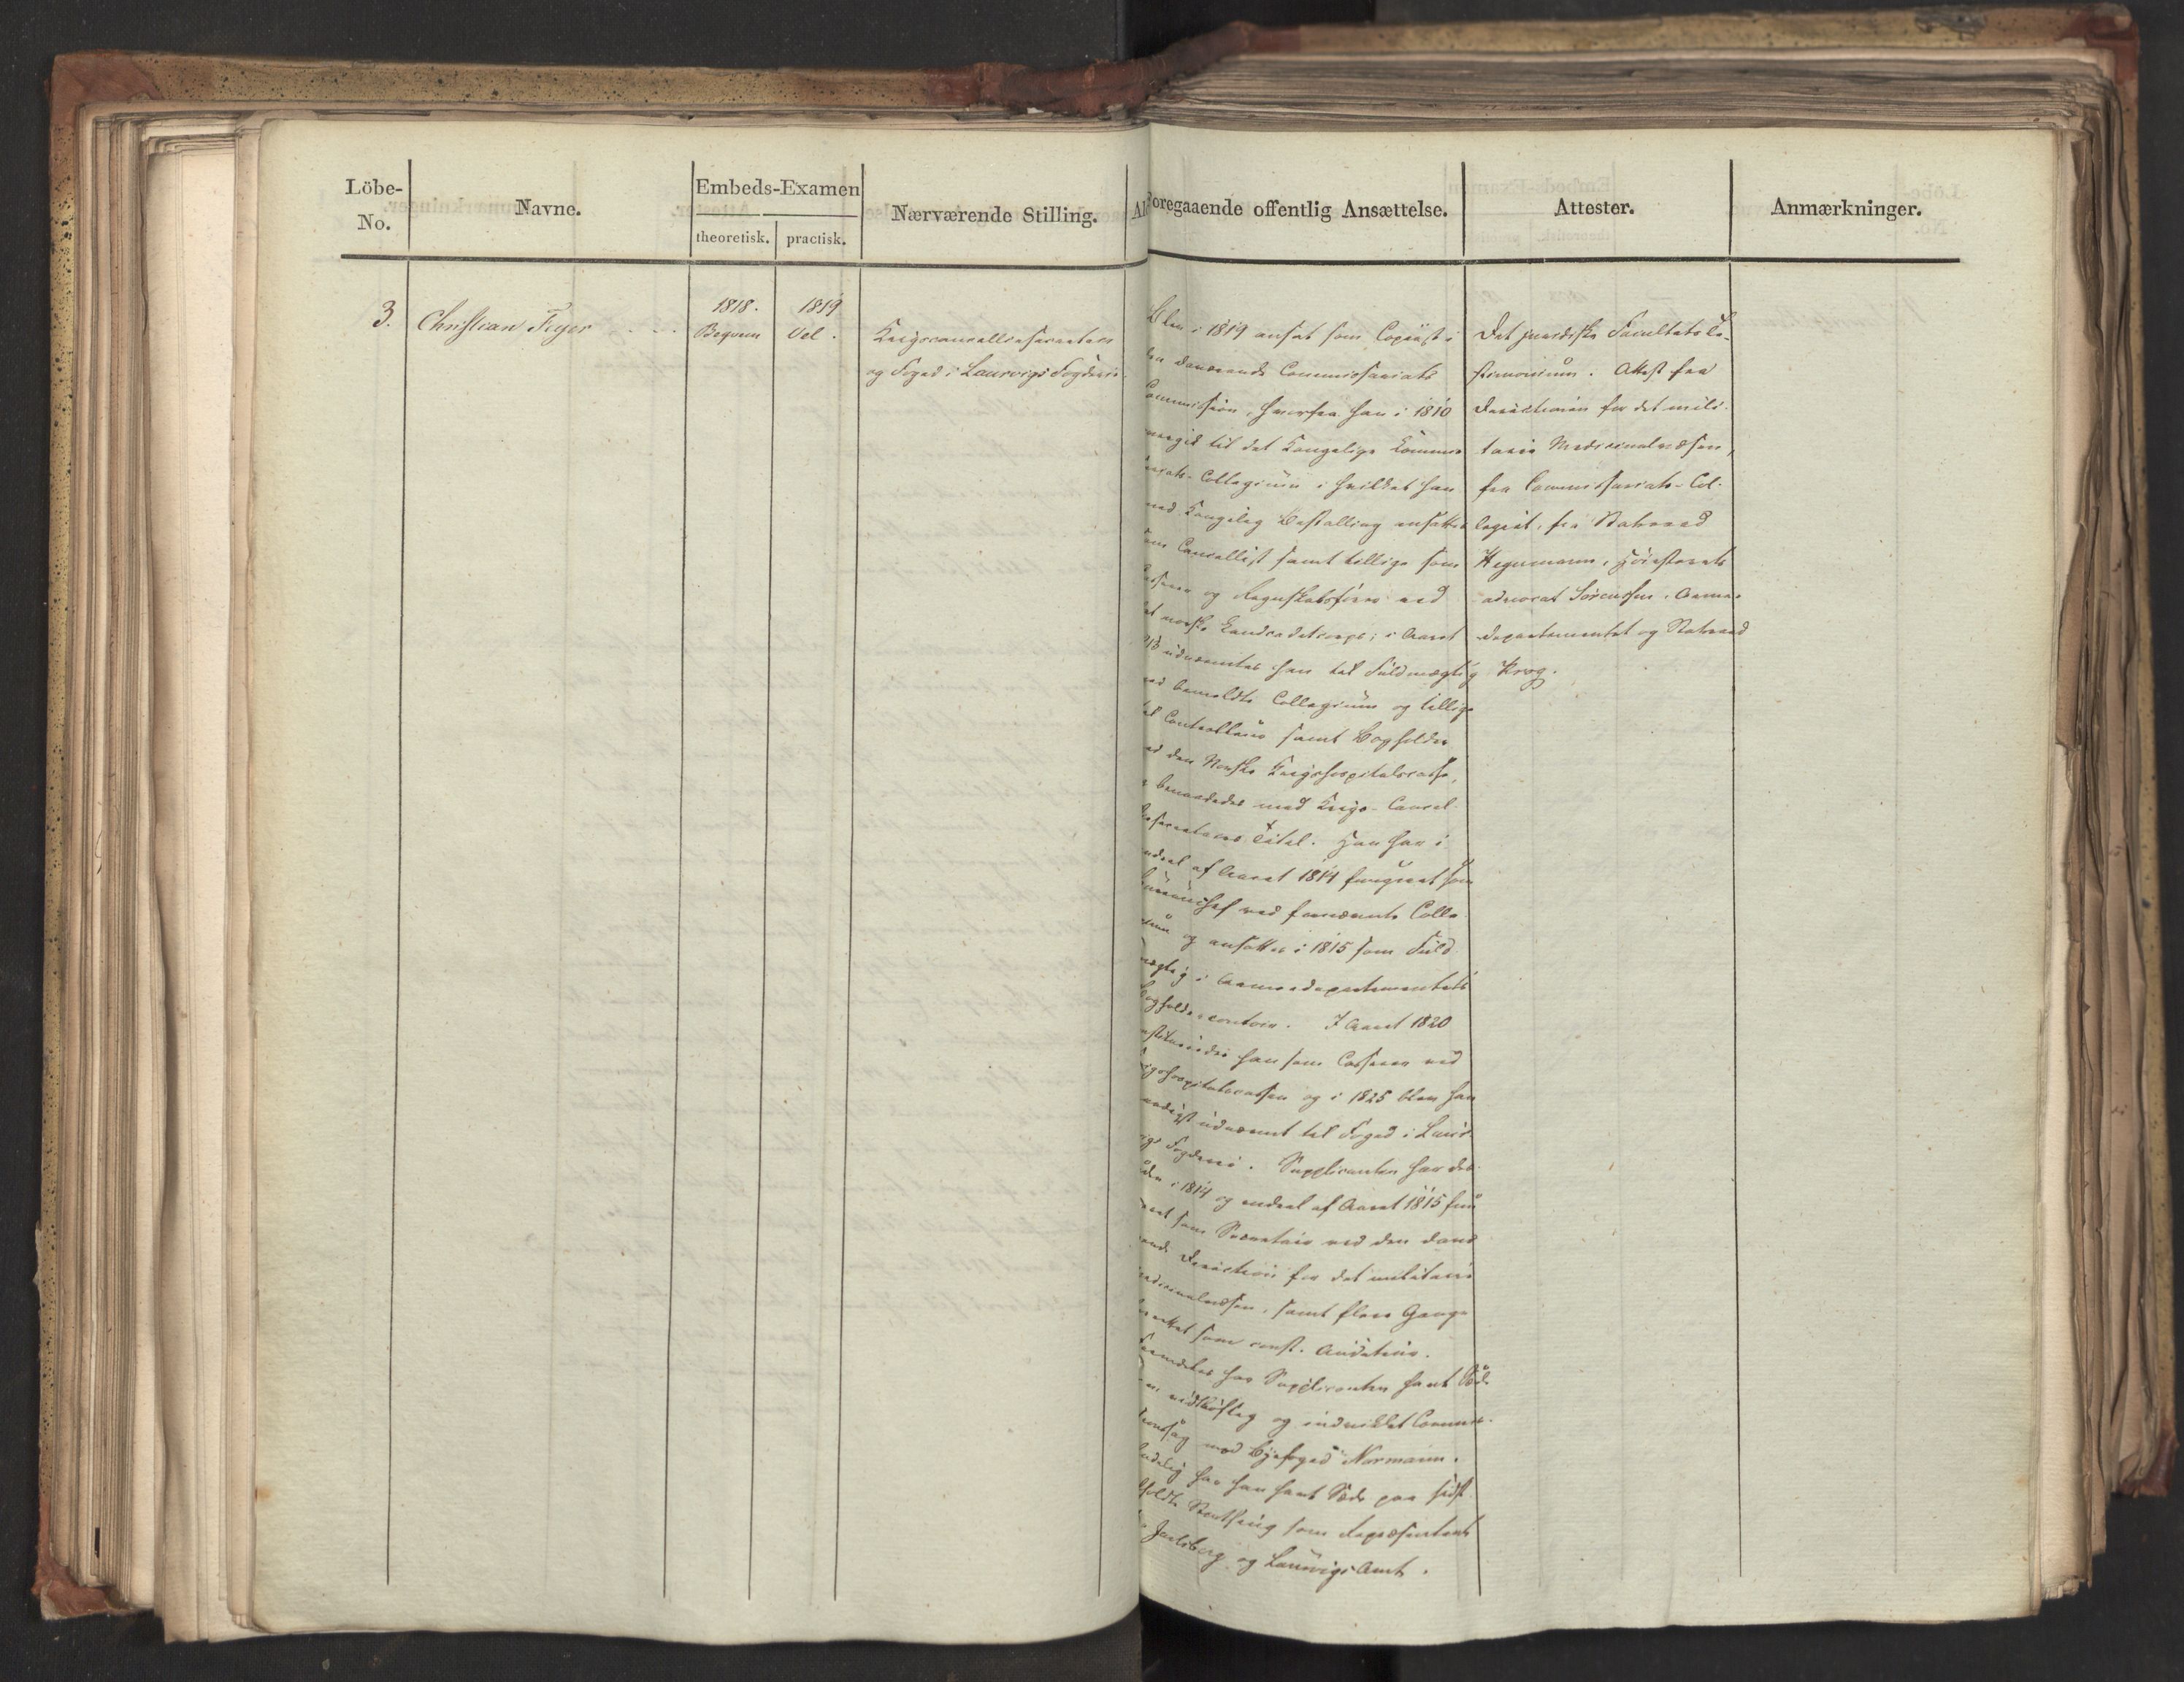 Löbe-
No.
Navne.
Embeds-Examen
theoretisk.
practisk.
Nærværende Stilling.
Al
Foregaaende offentlig Ansættelse.
Attester.
Anmærkninger.
3.
Christian Feyer
1818.
Beqvem
1819
Vel.
Krigscancellisecretair
og Foged i Laurvigs Fogderie.
Blev i 1809 ansat som Copiist i
den daværende Commissariats
Commission, hvorfra han i 1810
overgik til det Kongelige Commis
sariats-Collegium i hvilket han
med Kongelig Bestalling ansattes
som Cancellist samt tillige som
Casserer og Regnskabsfører ved
det norske Landcadetcorps; i Aaret
1813 udnævntes han til Fuldmægtig
ved bemeldte Collegium og tillige
til Controlleur samt Bogholder
ved den Norske Krigshospitalscasse,
benaadedes med Krigs-Cancel-
liesecretairs Titel. Han har i
endeel af Aaret 1814 fungeret som
Bureauchef ved fornævnte Colle
gium og ansattes i 1815 som Fuld
mægtig i Armeedepartementets
Bogholdercontoir. I Aaret 1820
constitueredes han som Casserer ved
Krigshospitalscassen og i 1825 blev han
naadigst udnævnt til Foged i Laur-
vigs Fogderie. Supplicanten har des
uden i 1814 og endeel af Aaret 1815 fun
geret som Secretair ved den davæ
rende Direction for det militaire
Medicinalvæsen, samt flere Gange
som const. Auditeur.
har Supplicanten havt Sæde
vidtløftig og indviklet Commis-
sionssag mod Byefoged Normann.
Endelig har han havt Sæde paa sidst
holdte Storthing som Repræsentant
for Jarlsberg og Laurvigs Amt.
Det juridiske Facultets Te-
stimonium. Attest fra
Directionen for det mili-
taire Medicinalvæsen,
fra Commissariats-Col-
legiet, fra Statsraad
Hegermann, Höiesterets
advocat Sörenssen, Armee
departementet og Statsraad
Krog.